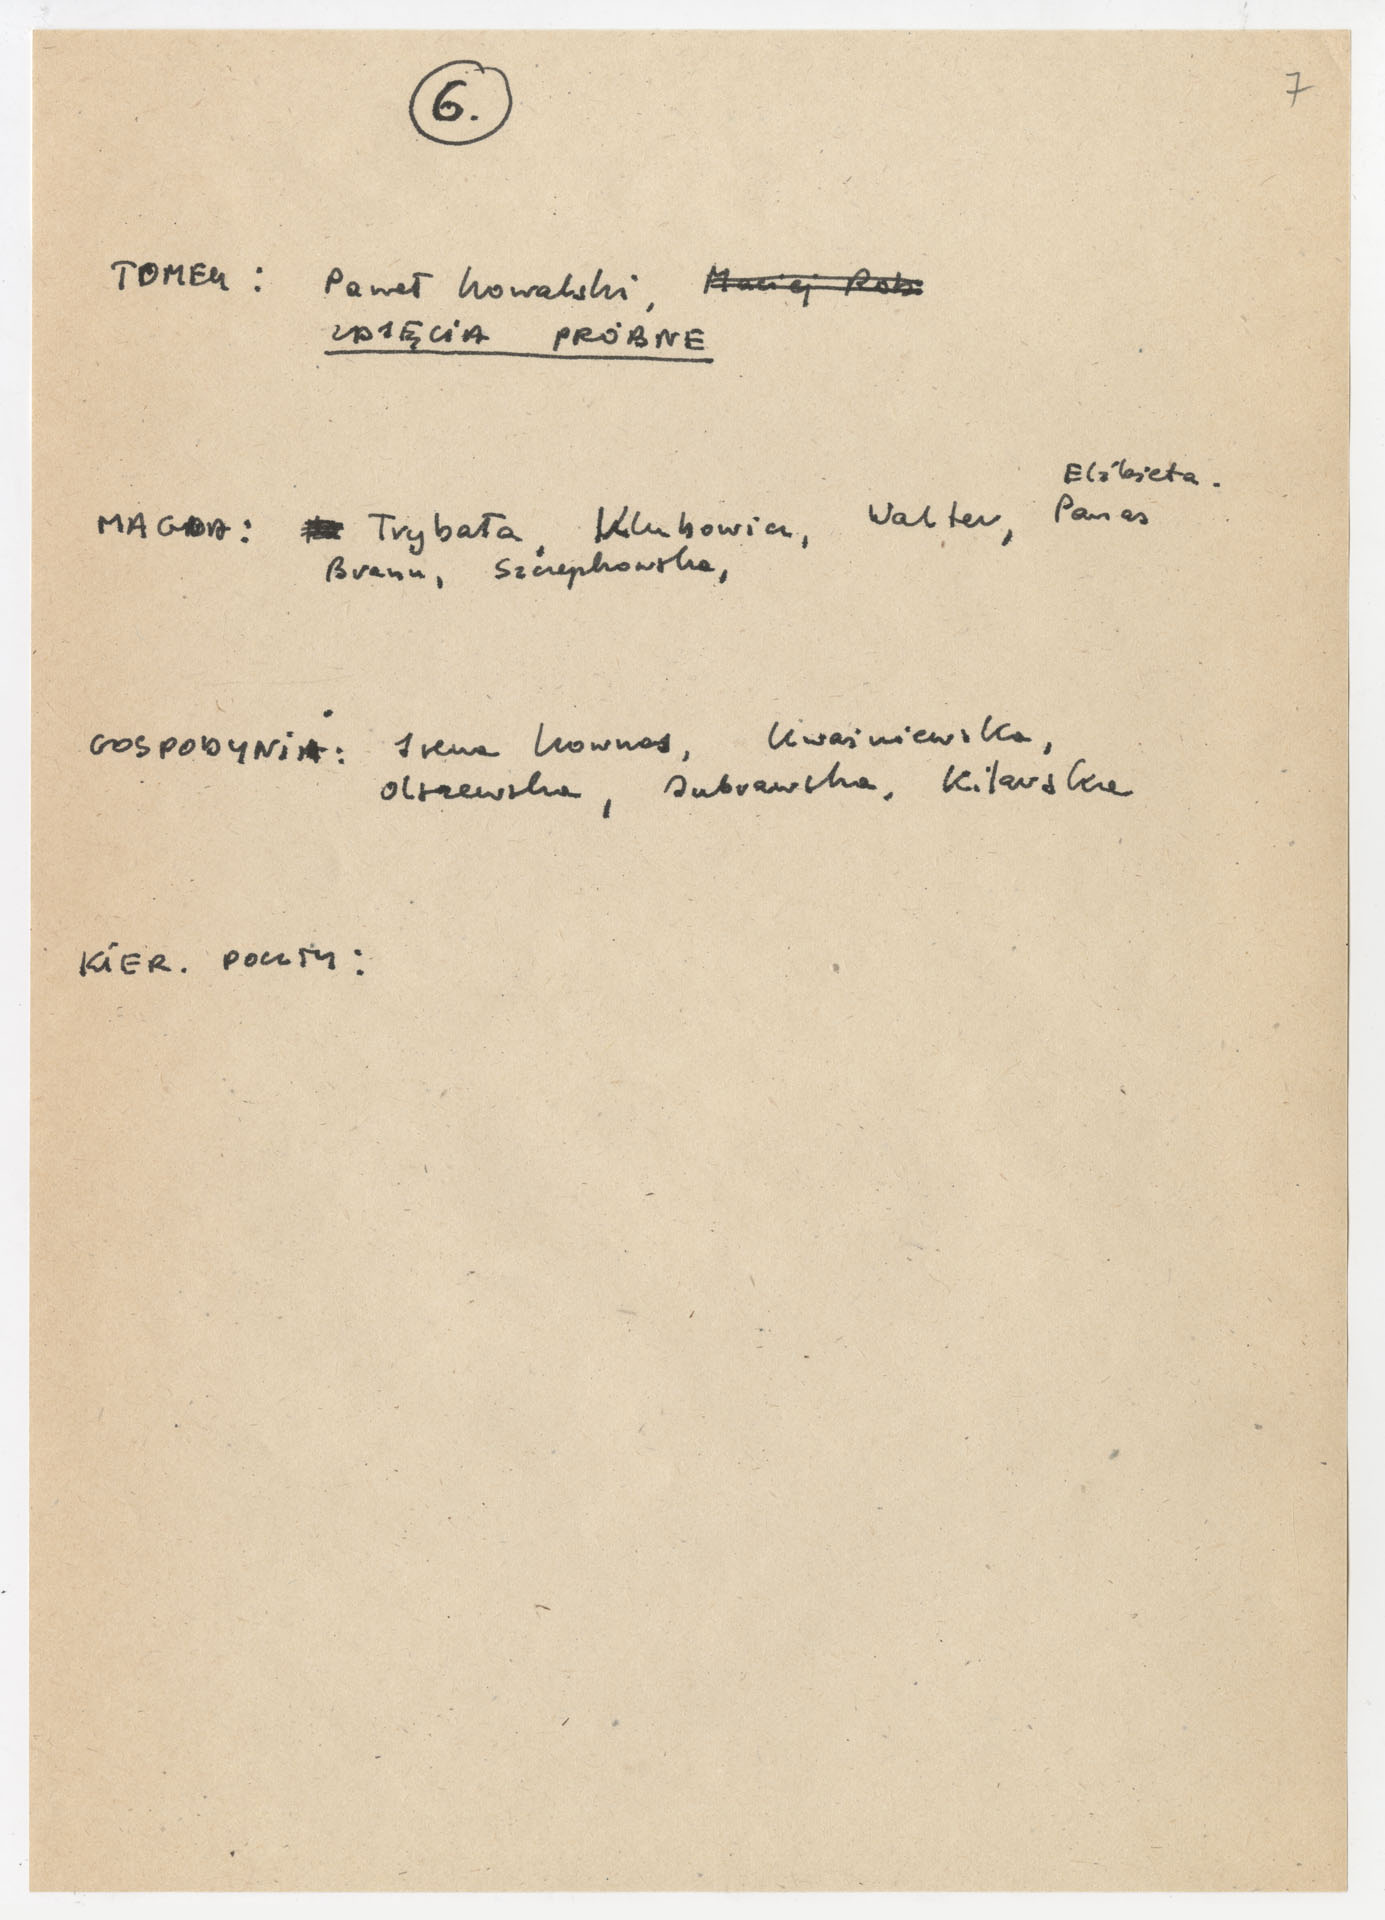 6.
7
TOMEK: Paweł Kowalski, Maciej Rob
ZDJĘCIA PRÓBNE
Elżbieta.
MAGDA: Trybała, Klubowicz, Walter, Panas
Braun, Szczepkowska,
GOSPODYNIA: Irena Kownas, Kwaśniewska,
Olszewska, Dubrawska, Kilarska
KIER. POCZTY: